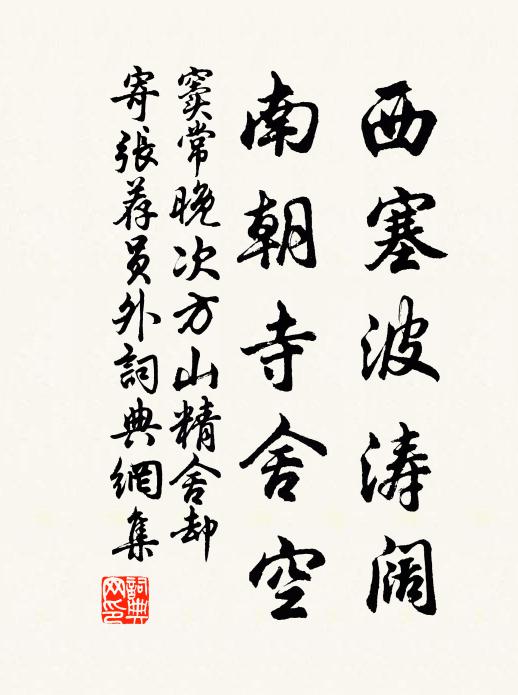 西塞波涛阔
南朝寺舍空
窦常晚次方山精舍却
寄張荐员外詞典網集
詞典网印